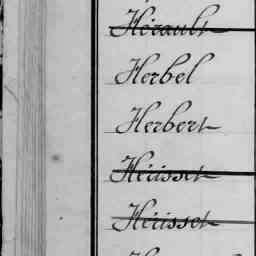 Hérault
Herbel
Herbert
Héüsset
Héüsset